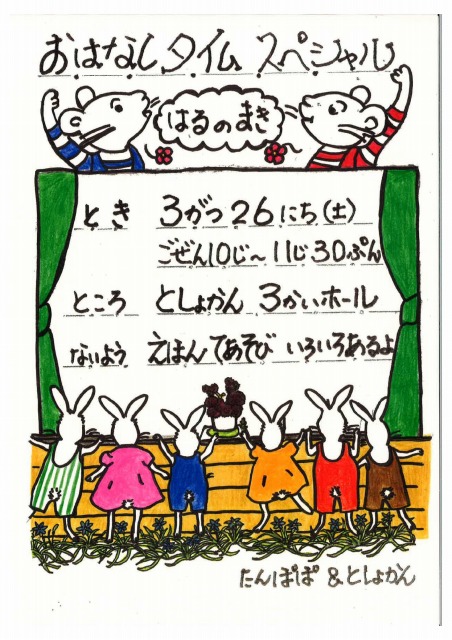 おはなしタイム スペシャル
はるのまき
とき 3がつ26にち(土)
ごぜん10じ～11じ30ぷん
ところ としょかん 3かいホール
ないよう えほん てあそび いろいろあるよ
たんぽぽ &としょかん